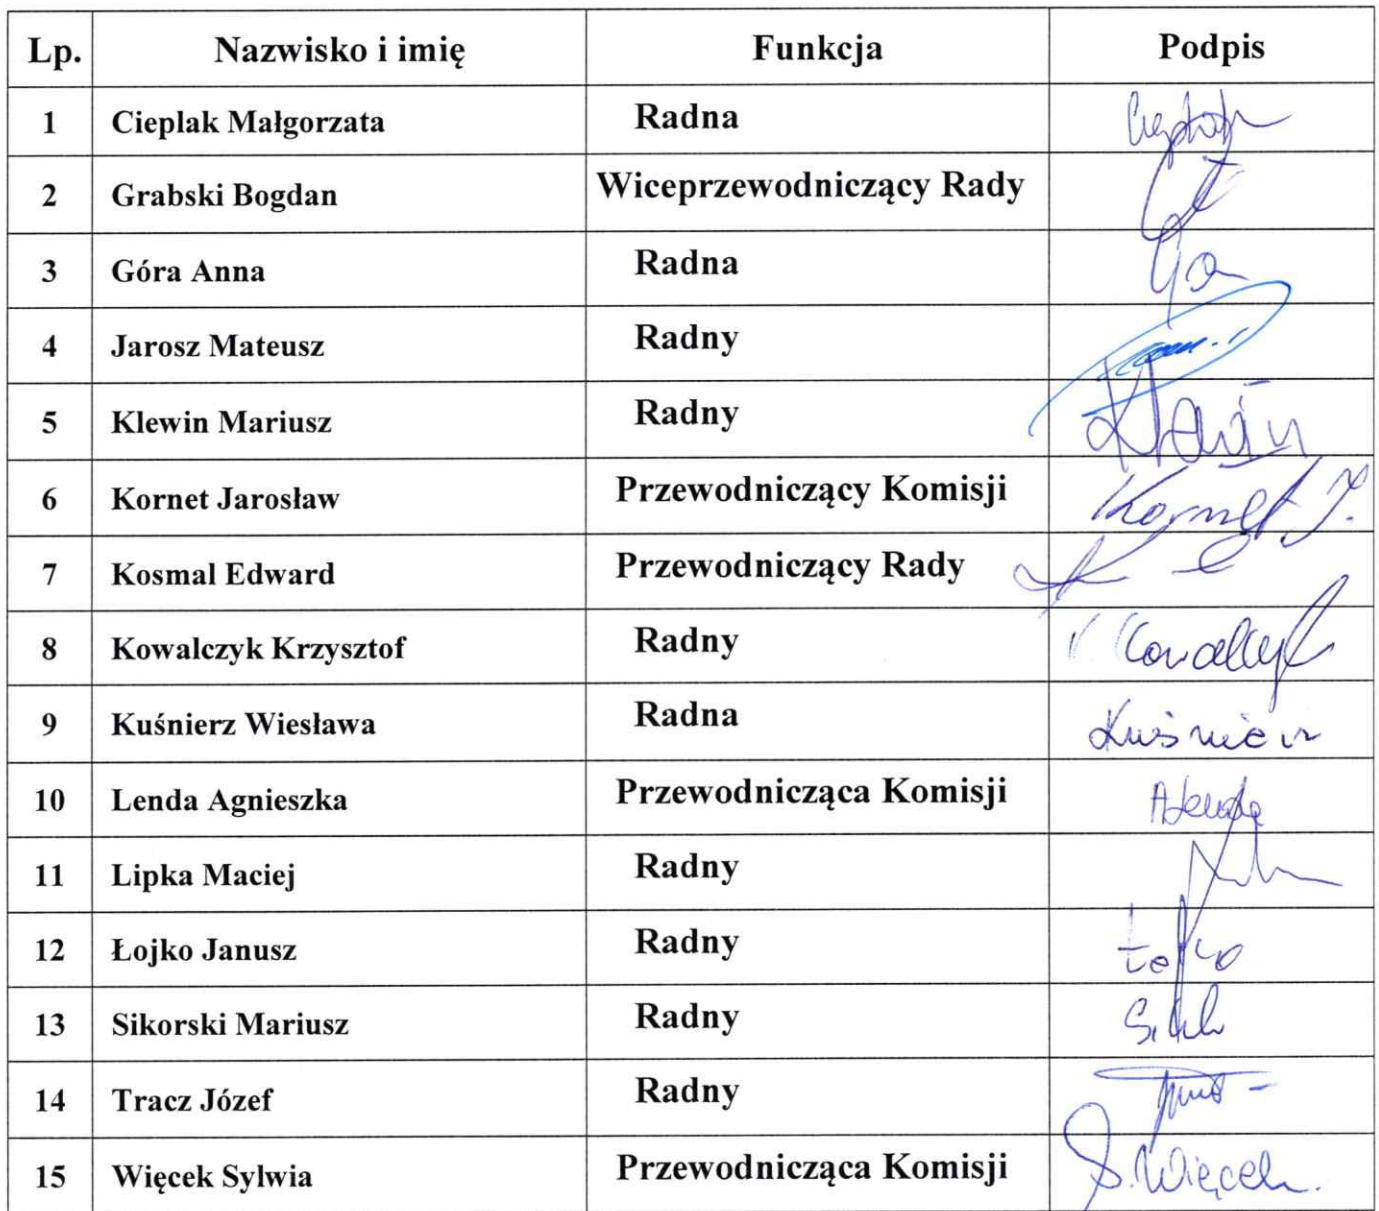 Lp. Nazwisko i imię Funkcja Podpis
1 Cieplak Małgorzata Radna
2 Grabski Bogdan Wiceprzewodniczący Rady
3 Góra Anna Radna
4 Jarosz Mateusz Radny
5 Klewin Mariusz Radny
6 Kornet Jarosław Przewodniczący Komisji Kornet J.
7 Kosmal Edward Przewodniczący Rady
8 Kowalczyk Krzysztof Radny
9 Kuśnierz Wiesława Radna
10 Lenda Agnieszka Przewodnicząca Komisji
11 Lipka Maciej Radny
12 Łojko Janusz Radny
13 Sikorski Mariusz Radny
14 Tracz Józef Radny
15 Więcek Sylwia Przewodnicząca Komisji S. Więcek.